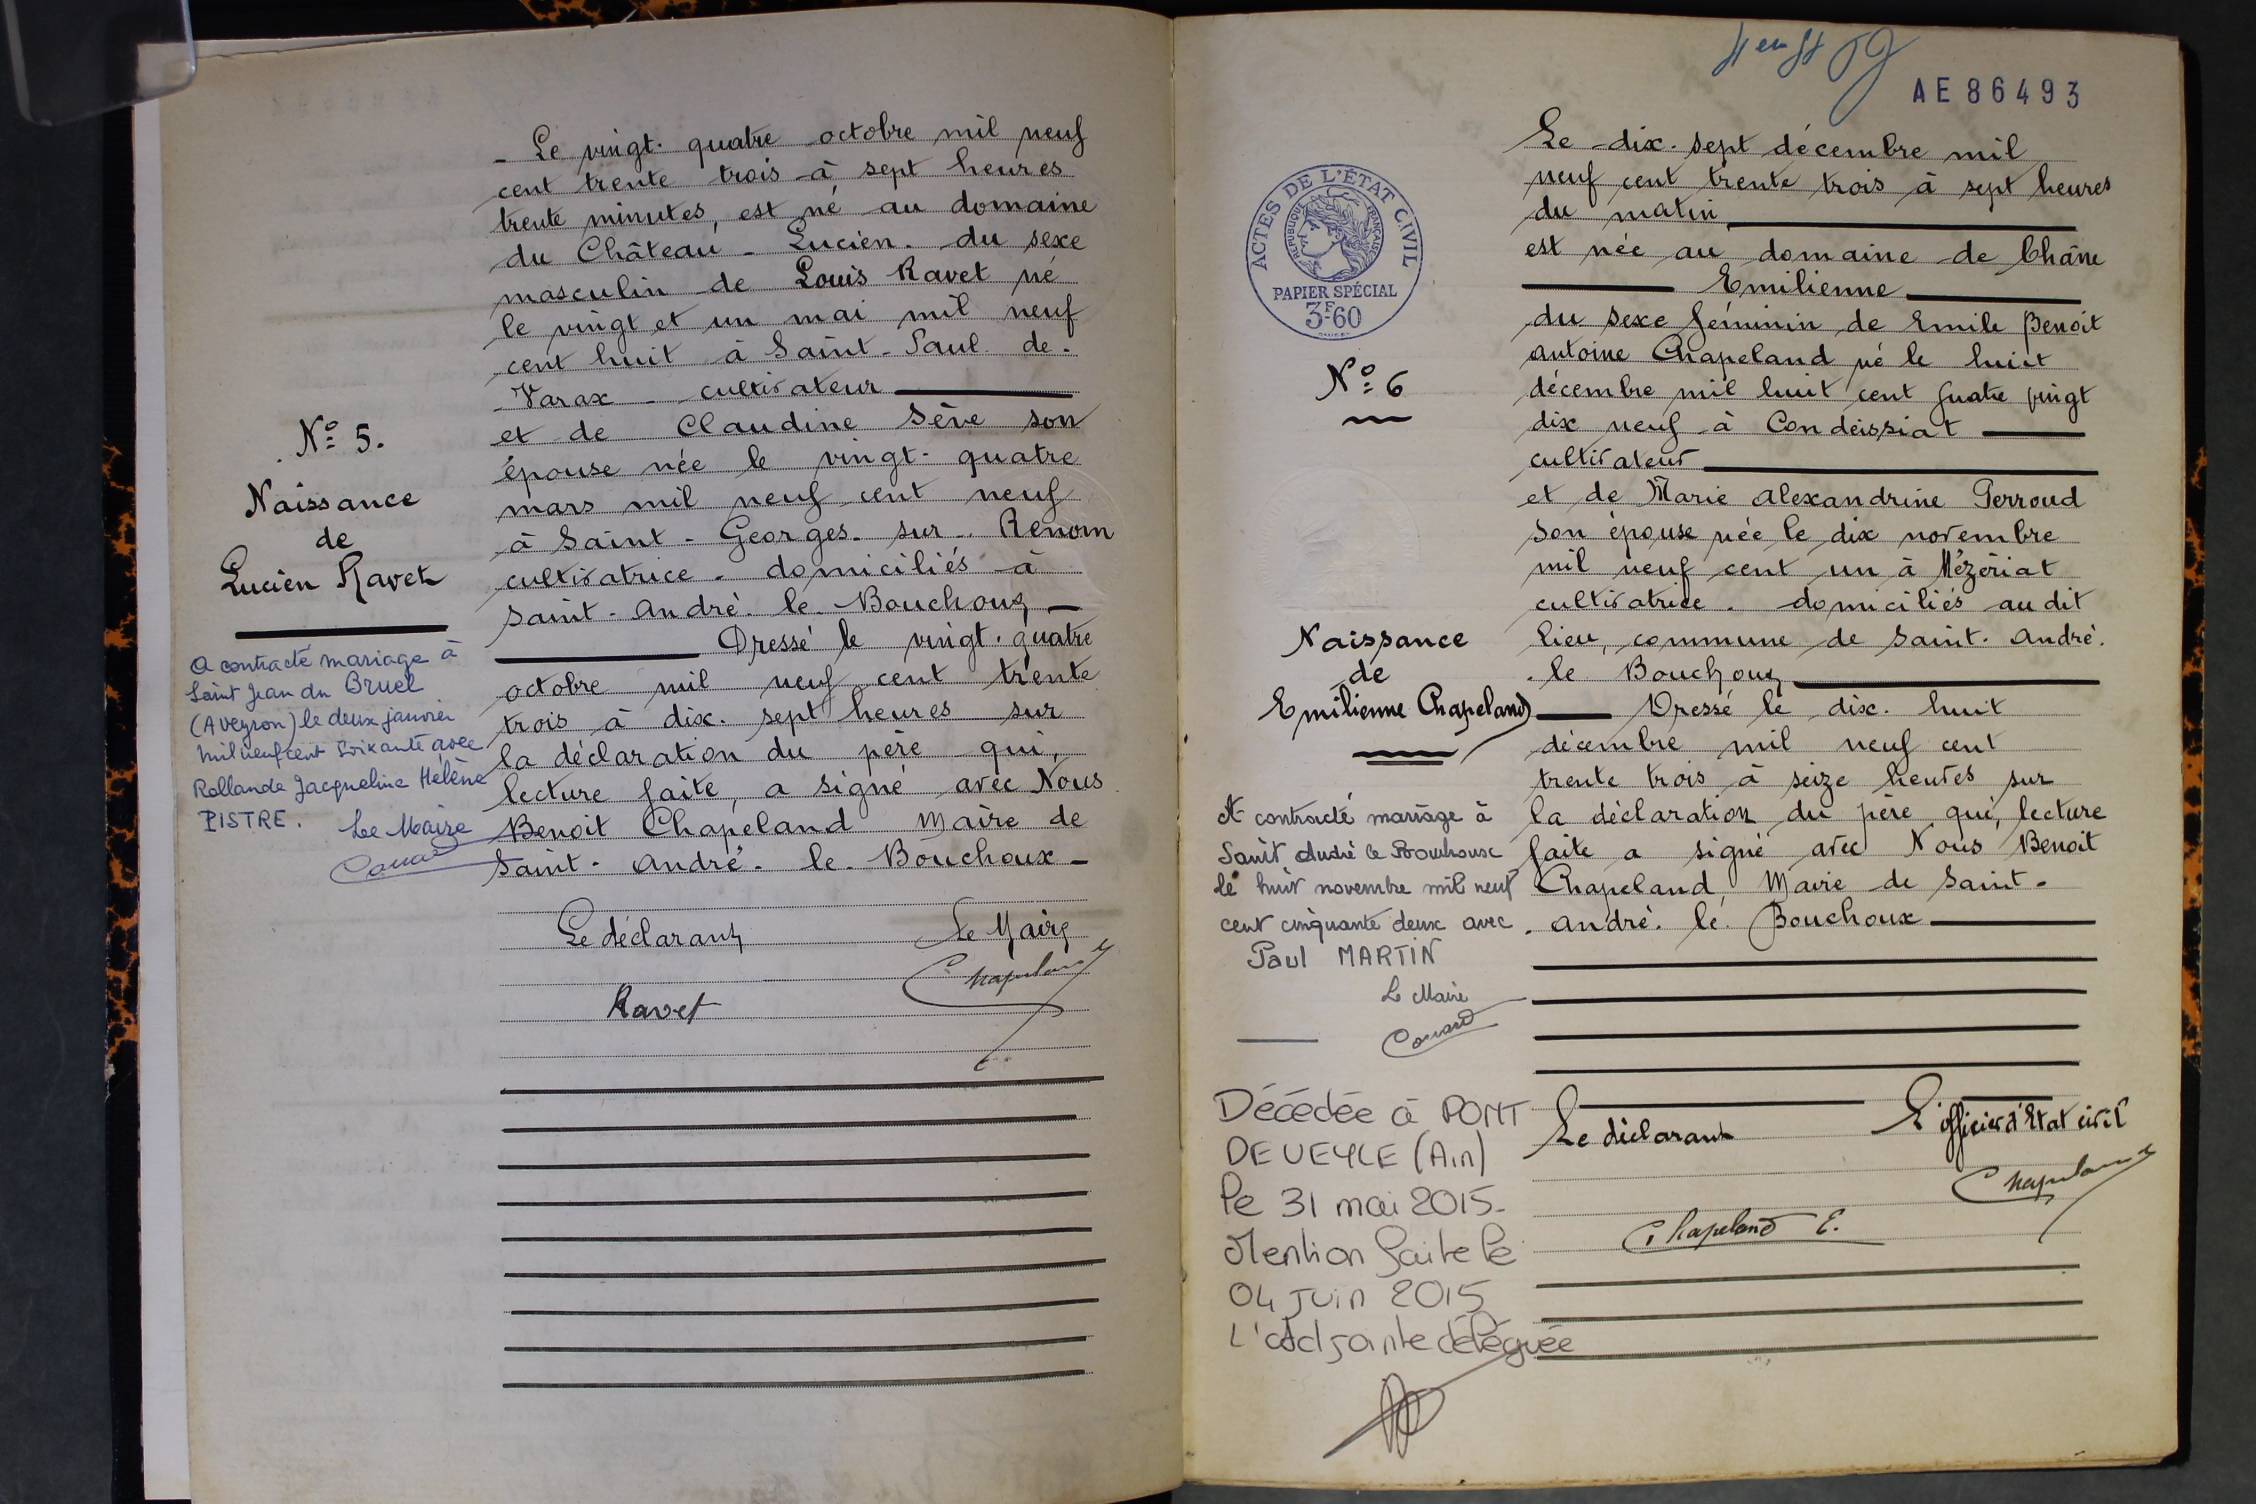 - Le vingt. quatre octobre mil neuf
cent trente trois à sept heures
trente minutes, est né au domaine
du Château - Lucien. du sexe
masculin de Louis Ravet né
le vingt et un mai mil neuf
cent huit à Saint-Paul de.
Varax - cultivateur
et de Claudine Sève son
épouse née le vingt-quatre
mars mil neuf cent neuf
à Saint-Georges-sur-Renom
cultivatrice. domiciliés à
Saint-André-le-Bouchoux
Dressé le vingt.quatre
octobre mil neuf cent trente
trois à dix.sept heures sur
la déclaration du père qui,
lecture faite, a signé avec Nous
Benoit Chapeland Maire de
Saint-André-le-Bouchoux-
Le déclarant
Le Maire
Chapeland
Ravet
N° 5.
Naissance
de
Lucien Ravet
A contracté mariage à
Saint Jean du Bruel
(Aveyron) le deux janvier
mil neuf cent soixante avec
Rollande Jacqueline Hélène
PISTRE.
Le Maire
AE 86493
Le dix.sept décembre mil
neuf cent trente trois à sept heures
du matin
est née au domaine de Châne
Emilienne
du sexe féminin de Emile Benoit
Antoine Chapeland né le huit
décembre mil huit cent quatre vingt
dix neuf à Condeissiat
cultivateur
et de Marie Alexandrine Perroud
son épouse née le dix novembre
mil neuf cent un à Mézériat
cultivatrice. domiciliés au dit
lieu, commune de Saint.André.
.le Bouchoux
Dressé le dix.huit
décembre mil neuf cent
trente trois à seize heures sur
la déclaration du père qui, lecture
faite a signé avec Nous Benoit
Chapeland Maire de Saint-
.André.le.Bouchoux
Le déclarant
L'officier d'Etat civil
Chapeland
Chapeland E.
ACTES DE L'ÉTAT CIVIL
RÉPUBLIQUE FRANÇAISE
PAPIER SPÉCIAL
3F60
N° 6
Naissance
de
Emilienne Chapeland
A contracté mariage à
Saint André le Bouchoux
le huit novembre mil neuf
cent cinquante deux avec
Paul MARTIN
Le Maire
Décédée à PONT
DE VEYLE (Ain)
le 31 mai 2015-
Mention faite le
04 juin 2015
L'adjointe déléguée